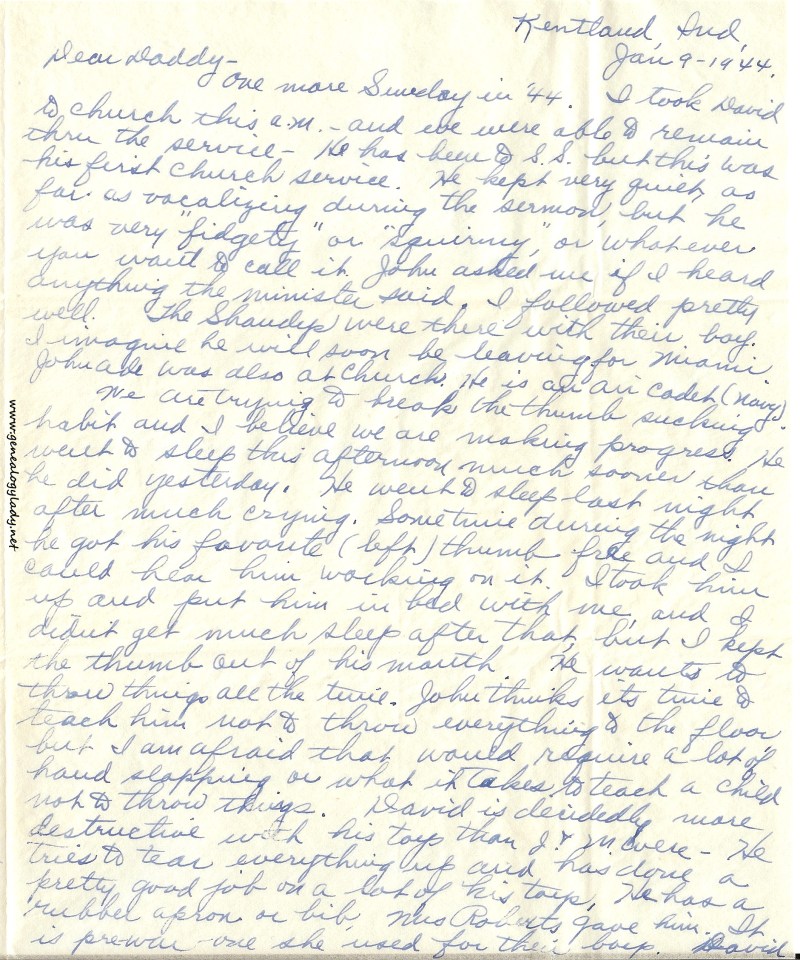 Kentland, Ind,
Jan 9-1944.
Dear Daddy-
One more Sunday in '44. I took David
to church this a.m. - and we were able to remain
thru the service - He has been to S.S. but this was
his first church service. He kept very quiet, as
far as vocalizing during the sermon, but he
was very "fidgety" or "squirmy," or what ever
you want to call it. John asked me if I heard
anything the minister said. I followed pretty
well. The Shaudys were there with their boy.
I imagine he will soon be leaving for Miami.
John Ade was also at church. He is an air cadet (navy).
We are trying to break the thumb sucking
habit and I believe we are making progress. He
went to sleep this afternoon much sooner than
he did yesterday. He went to sleep last night
after much crying. Sometime during the night
he got his favorite (left) thumb free and I
could hear him working on it. I took him
up and put him in bed with me, and I
didn't get much sleep after that, but I kept
the thumb out of his mouth. He wants to
throw things all the time. John thinks its time to
teach him not to throw everything to the floor
but I am afraid that would require a lot of
hand slapping or what it takes, to teach a child
not to throw things. David is decidedly more
destructive with his toys than J. & M. were - He
tries to tear everything up and has done a
pretty good job on a lot of his toys, He has a
rubber apron or bib, Mrs Roberts gave him. It
is prewar - one she used for their boys. David
www.genealogylady.net